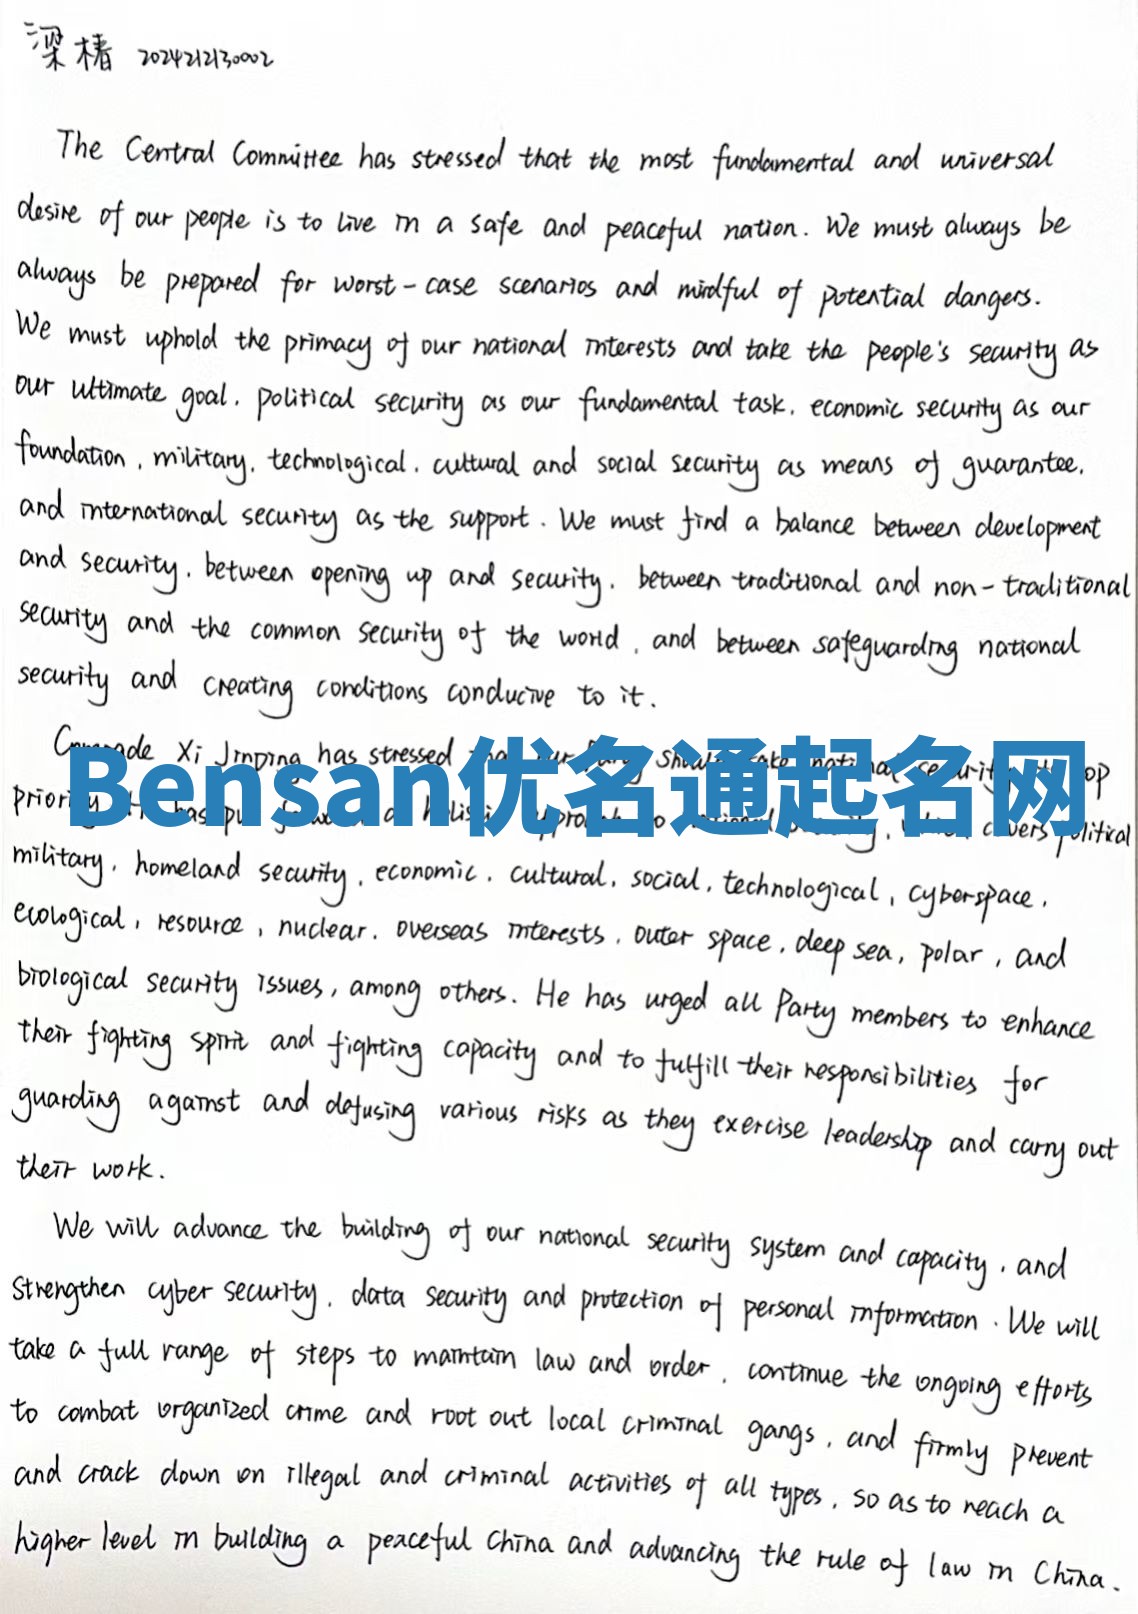 梁椿 2024212130002
The Central Committee has stressed that the most fundamental and universal
desire of our people is to live in a safe and peaceful nation. We must always be
always be prepared for worst-case scenarios and mindful of potential dangers.
We must uphold the primacy of our national interests and take the people's security as
our ultimate goal, political security as our fundamental task, economic security as our
foundation, military, technological, cultural and social security as means of guarantee,
and international security as the support. We must find a balance between development
and security, between opening up and security, between traditional and non-traditional
security and the common security of the world, and between safeguarding national
security and creating conditions conducive to it.
Xi Jinping has stressed
Bensan优名通起名网
political
military, homeland security, economic, cultural, social, technological, cyberspace,
ecological, resource, nuclear, overseas interests, outer space, deep sea, polar, and
biological security issues, among others. He has urged all Party members to enhance
their fighting spirit and fighting capacity and to fulfill their responsibilities for
guarding against and defusing various risks as they exercise leadership and carry out
their work.
We will advance the building of our national security system and capacity, and
strengthen cyber security, data security and protection of personal information. We will
take a full range of steps to maintain law and order, continue the ongoing efforts
to combat organized crime and root out local criminal gangs, and firmly prevent
and crack down on illegal and criminal activities of all types, so as to reach a
higher level in building a peaceful China and advancing the rule of law in China.